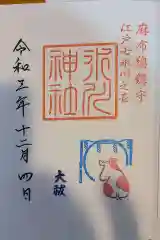 麻布總鎮守
江戸七氷川之
氷川
神社
大祓
令和三年十二月四日